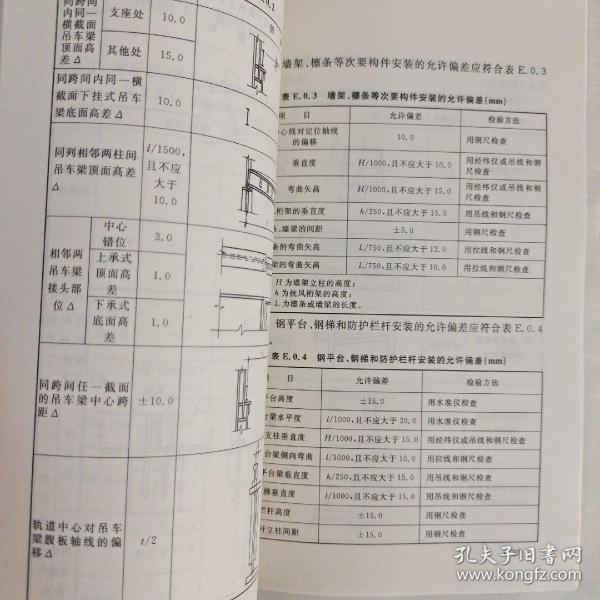 同跨间
内同一
横截面
吊车梁
顶面高
差Δ
支座处
10.0
其他处
15.0
同跨间内同一横
截面下挂式吊车
梁底面高差Δ
10.0
同列相邻两柱间
吊车梁顶面高差
Δ
l/1500,
且不应
大于
10.0
相邻两
吊车梁
接头部
位Δ
中心
错位
3.0
上承式
顶面高
差
1.0
下承式
底面高
差
1.0
同跨间任一截面
的吊车梁中心跨
距Δ
±10.0
轨道中心对吊车
梁腹板轴线的偏
移Δ
t/2
墙架、檩条等次要构件安装的允许偏差应符合表 E.0.3
表 E.0.3 墙架、檩条等次要构件安装的允许偏差(mm)
项 目 允许偏差 检验方法
心线对定位轴线
的偏移
10.0 用钢尺检查
垂直度 H/1000,且不应大于10.0 用经纬仪或吊线和钢
尺检查
弯曲矢高 H/1000,且不应大于15.0 用经纬仪或吊线和钢
尺检查
桁架的垂直度 h/250,且不应大于15.0 用吊线和钢尺检查
、墙梁的间距 ±5.0 用钢尺检查
的弯曲矢高 L/750,且不应大于12.0 用拉线和钢尺检查
的弯曲矢高 L/750,且不应大于10.0 用拉线和钢尺检查
H 为墙架立柱的高度;
h 为抗风桁架的高度;
L 为檩条或墙梁的长度。
钢平台、钢梯和防护栏杆安装的允许偏差应符合表 E.0.4
表 E.0.4 钢平台、钢梯和防护栏杆安装的允许偏差(mm)
目 允许偏差 检验方法
平台高度 ±15.0 用水准仪检查
台梁水平度 l/1000,且不应大于20.0 用水准仪检查
支柱垂直度 H/1000,且不应大于15.0 用经纬仪或吊线和钢尺检查
台梁侧向弯曲 l/1000,且不应大于10.0 用拉线和钢尺检查
平台梁垂直度 h/250,且不应大于15.0 用吊线和钢尺检查
梯垂直度 l/1000,且不应大于15.0 用吊线和钢尺检查
栏杆高度 ±15.0 用钢尺检查
杆立柱间距 ±15.0 用钢尺检查
孔夫子旧书网
www.kongfz.com